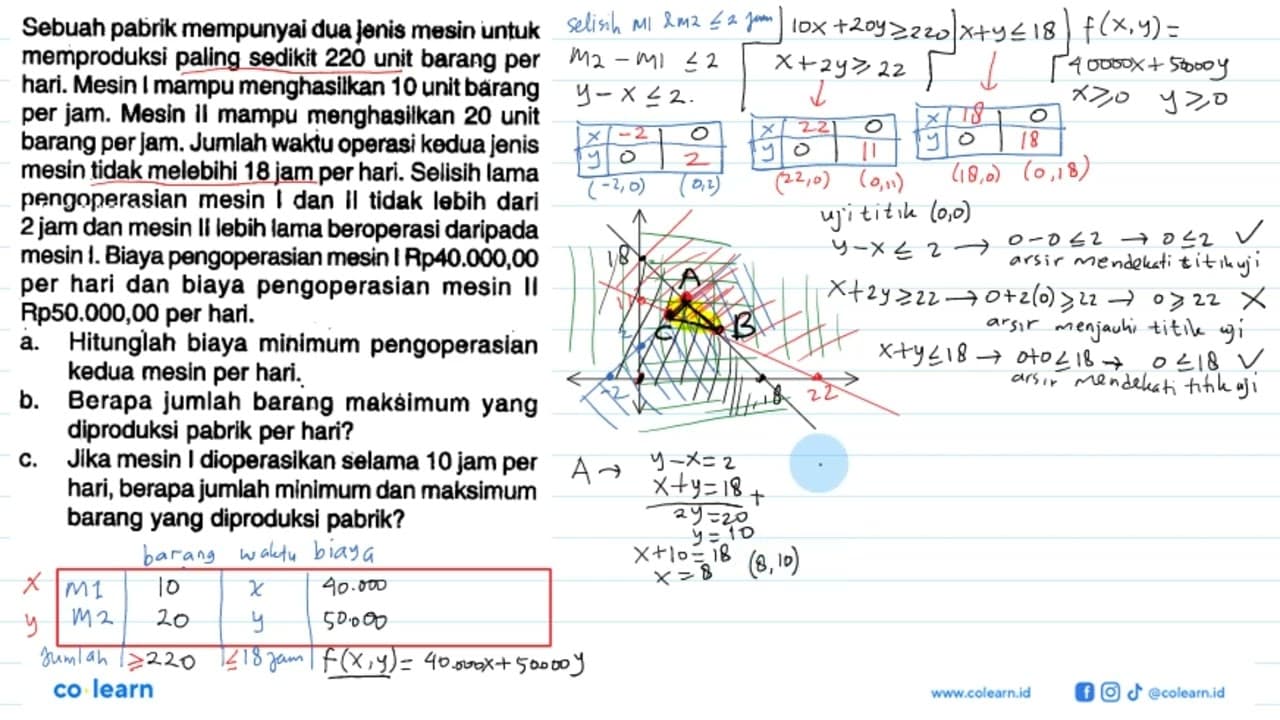 Sebuah pabrik mempunyai dua jenis mesin untuk
memproduksi paling sedikit 220 unit barang per
hari. Mesin I mampu menghasilkan 10 unit barang
per jam. Mesin II mampu menghasilkan 20 unit
barang per jam. Jumlah waktu operasi kedua jenis
mesin tidak melebihi 18 jam per hari. Selisih lama
pengoperasian mesin I dan II tidak lebih dari
2 jam dan mesin II lebih lama beroperasi daripada
mesin I. Biaya pengoperasian mesin I Rp40.000,00
per hari dan biaya pengoperasian mesin II
Rp50.000,00 per hari.
a. Hitunglah biaya minimum pengoperasian
kedua mesin per hari.
b. Berapa jumlah barang maksimum yang
diproduksi pabrik per hari?
c. Jika mesin I dioperasikan selama 10 jam per
hari, berapa jumlah minimum dan maksimum
barang yang diproduksi pabrik?
barang waktu biaya
x M1 10 x 40.000
y M2 20 y 50.000
Jumlah ≥220 ≤18 jam f(x,y) = 40.000x + 50000y
selisih M1 & M2 ≤ 2 jam
M2 - M1 ≤ 2
y - x ≤ 2.
x -2 0
y 0 2
(-2,0) (0,2)
10x + 20y ≥ 220
x + 2y ≥ 22
x 22 0
y 0 11
(22,0) (0,11)
x + y ≤ 18
x 18 0
y 0 18
(18,0) (0,18)
f(x,y) =
40000x + 50000y
x ≥ 0 y ≥ 0
18
A
11
C B
2
-2 18 22
uji titik (0,0)
y - x ≤ 2 → 0 - 0 ≤ 2 → 0 ≤ 2 ✓
arsir mendekati titik uji
x + 2y ≥ 22 → 0 + 2(0) ≥ 22 → 0 ≥ 22 X
arsir menjauhi titik uji
x + y ≤ 18 → 0+0 ≤ 18 → 0 ≤ 18 ✓
arsir mendekati titik uji
A → y - x = 2
x + y = 18 +
2y = 20
y = 10
x + 10 = 18
x = 8 (8,10)
co learn
www.colearn.id @colearn.id